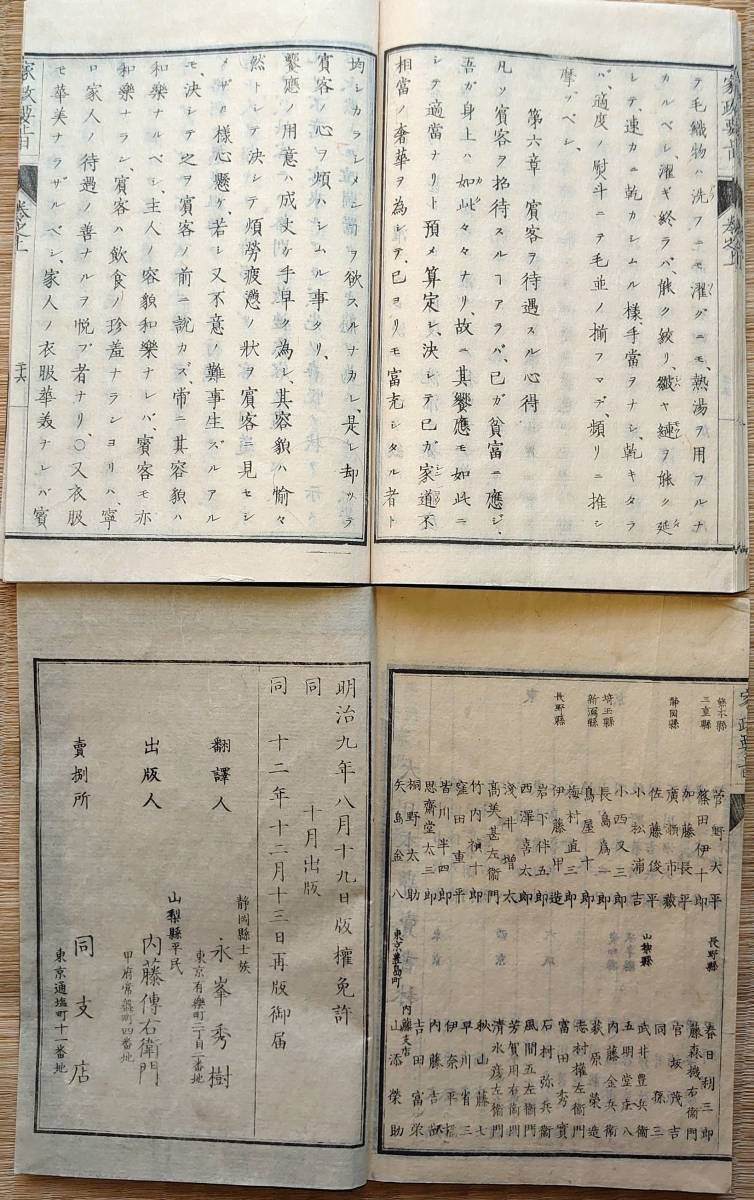 テ毛織物ハ洗フニモ濯グニモ、熱湯ヲ用フルナ
カルベシ、濯ギ終ラバ、能ク絞リ、皺ヤ縺ヲ能ク延
シテ、速カニ乾カシムル様、手當ヲナシ、乾キタラ
バ、適度ノ熨斗ニテ毛並ノ揃フマデ、頻リニ推シ
摩ツベシ、
第六章 賓客ヲ待遇スル心得
凡ソ賓客ヲ招待スルヿアラバ、己ガ貧富ニ應ジ、
吾ガ身上ハ如此々々ナリ、故ニ其饗應モ如此ニ
シテ適當ナリト預メ算定シ、決シテ己ガ家道不
相當ノ奢華ヲ為シテ、己ヨリモ富充シタル者ト
均シカランヿヲ欲スルナカレ、是レ却ツテ
賓客ノ心ヲ煩ハシムル事タリ、
饗應ノ用意ハ成丈ケ手早ク為シ、其容貌ハ愉々
然トシテ決シテ煩勞疲憊ノ狀ヲ賓客ニ見セシ
メザル様心懸ケ、若シ又不意ノ難事生ズルアル
モ、決シテ之ヲ賓客ノ前ニ説カズ、常ニ其容貌ハ
和樂ナルベシ、主人ノ容貌和樂ナレバ、賓客モ亦
和樂ナラン、賓客ハ飲食ノ珍羞ナランヨリハ、寧
ロ家人ノ待遇ノ善ナルヲ悦ブ者ナリ、○又衣服
モ華美ナラザルベシ、家人ノ衣服華美ナレバ賓
家政要旨 卷之上 二十六
長野縣
春日利三郎
藤森機右衛門
宮坂茂吉
同孫三
山梨縣
武井豊兵衛
五明堂庄八
内藤金兵衛
萩原榮造
志村權左衛門
富田秀實
石村弥兵衛
風間五左衛門
芳賀用右衛門
清水彦左衛門
秋山藤七
早川省三
伊奈平
内藤吉
内藤支店
吉田冨
東京豊島町
山添榮助
三重縣
静岡縣
埼玉縣
新潟縣
長野縣
菅野大平
篠田伊十郎
加藤長平
廣瀬市蔵
佐藤俊平
小松浦吉
小西又三郎
長島為一郎
鳥屋十郎
梅村直三郎
伊藤甲造
岩下伴五郎
西澤喜太郎
浅井増太
高美甚左衛門
竹内禎十郎
窪田重平
皆川半四郎
思齋堂太三郎
桐野太助
矢島金八
明治九年八月十九日版權免許
同 十月出版
同 十二年十二月十三日再版御届
翻譯人
静岡縣士族
永峯秀樹
東京有樂町二丁目二番地
出版人
山梨縣平民
内藤傳右衛門
甲府常盤町四番地
賣捌所
同支店
東京通塩町十一番地